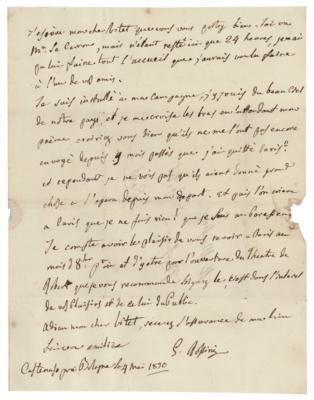 J'espère mon cher Vitet que vous vous portez bien. J'ai vu
Mr. Le Cerone, mais n'étant resté ici que 24 heures, jamai
pu lui faire tout l'accueil que j'aurais voulu faire
à l'un de vos amis.
Je suis installé à ma Campagne, j'y jouis du beau Ciel
de notre pays, et je me croise les bras en attendant mon
poème croiriez vous bien qu'ils ne me l'ont pas encore
envoyé depuis 9 mois passés que j'ai quitté Paris?
et cependant je ne vois pas qu'ils aient donné grand
chose a l'opera depuis mon départ. et puis l'on criera
a Paris que je ne fais rien! que je suis un paresseux
Je compte avoir le plaisir de vous revoir a Paris au
mois d'8bre et d'y être pour l'ouverture du Theatre de
que je vous recommande Soignez le, c'est dans l'interet
de vos plaisirs et de celui du Public.
Adieu mon cher Vitet, recevez l'assurance de ma bien
sincere amitiée
G. Rossini
Castenaso près Bologne le 4 Mai 1830